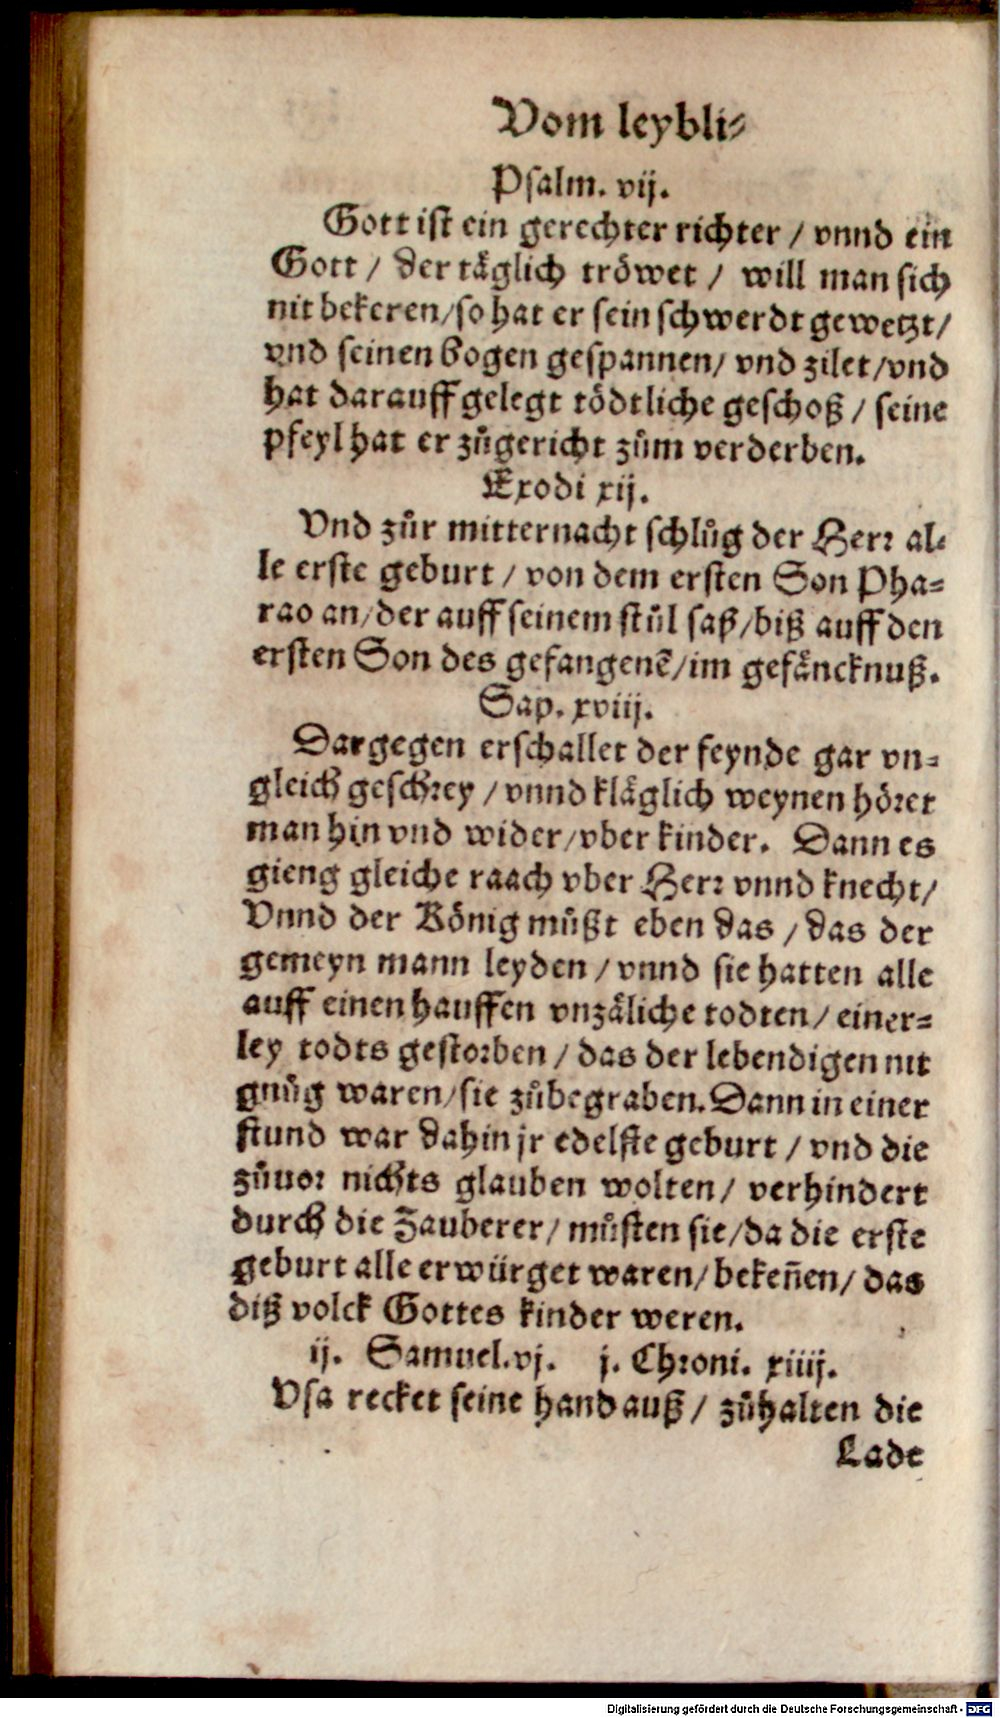 Vom leybli⸗
Psalm. vij.
Gott ist ein gerechter richter / vnnd ein
Gott / der täglich tröwet / will man sich
nit bekeren/so hat er sein schwerdt gewetzt/
vnd seinen bogen gespannen/ vnd zilet/vnd
hat darauff gelegt tödtliche geschoß / seine
pfeyl hat er zůgericht zům verderben.
Exodi xij.
Vnd zůr mitternacht schlůg der Herr al⸗
le erste geburt / von dem ersten Son Pha⸗
rao an/der auff seinem stůl saß/biß auff den
ersten Son des gefangenē/im gefäncknuß.
Sap. xviij.
Dargegen erschallet der feynde gar vn⸗
gleich geschrey / vnnd kläglich weynen höret
man hin vnd wider/vber kinder. Dann es
gieng gleiche raach vber Herr vnnd knecht/
Vnnd der König můßt eben das / das der
gemeyn mann leyden / vnnd sie hatten alle
auff einen hauffen vnzäliche todten / einer⸗
ley todts gestorben / das der lebendigen nit
gnůg waren/sie zůbegraben. Dann in einer
stund war dahin jr edelste geburt / vnd die
zůuor nichts glauben wolten/ verhindert
durch die Zauberer/ můsten sie/da die erste
geburt alle erwürget waren/ bekeñen/ das
diß volck Gottes kinder weren.
ij. Samuel.vj. j. Chroni. xiiij.
Vsa recket seine hand auß / zůhalten die
Lade
Digitalisierung gefördert durch die Deutsche Forschungsgemeinschaft - DFG